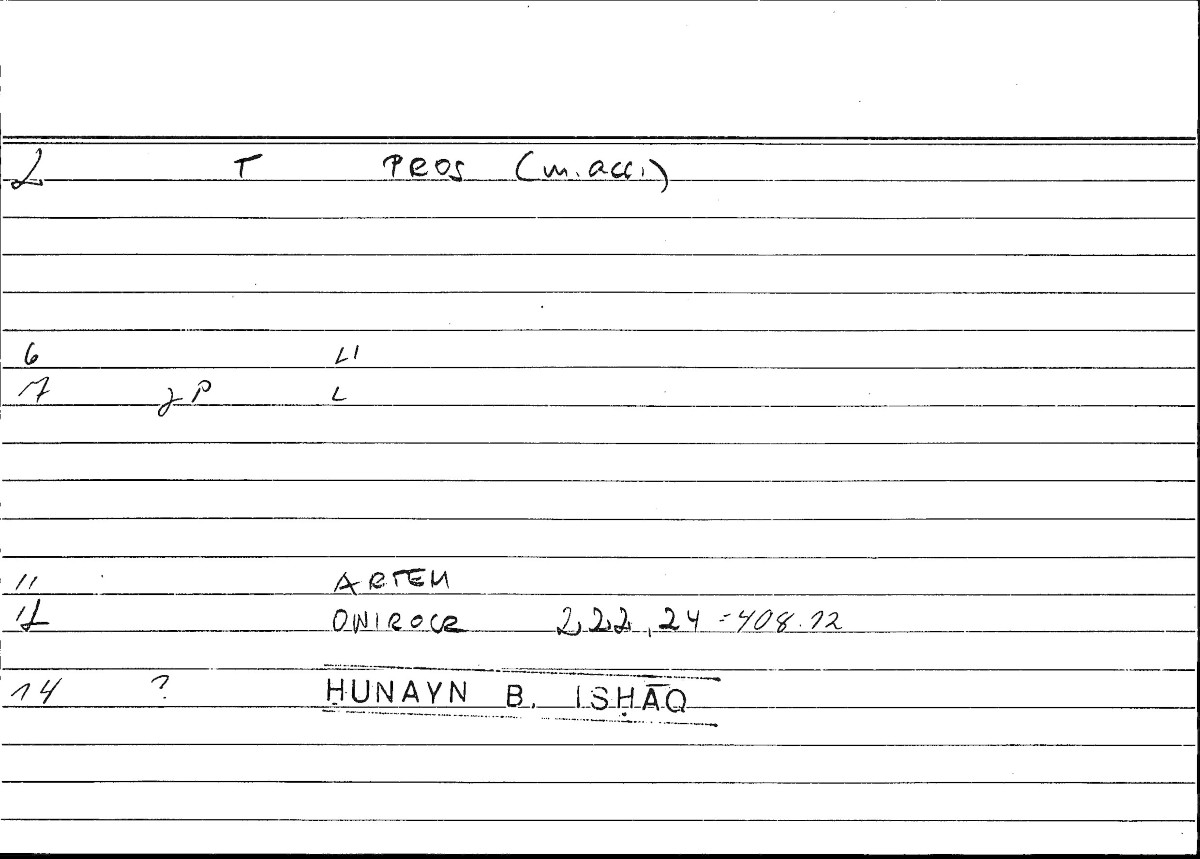 2 T PROS (m. acc.)
6 LI
7 gP L
11 ARTEM
12 ONIROCR 222,24 = 408.12
14 ? ḤUNAYN B. ISḤĀQ